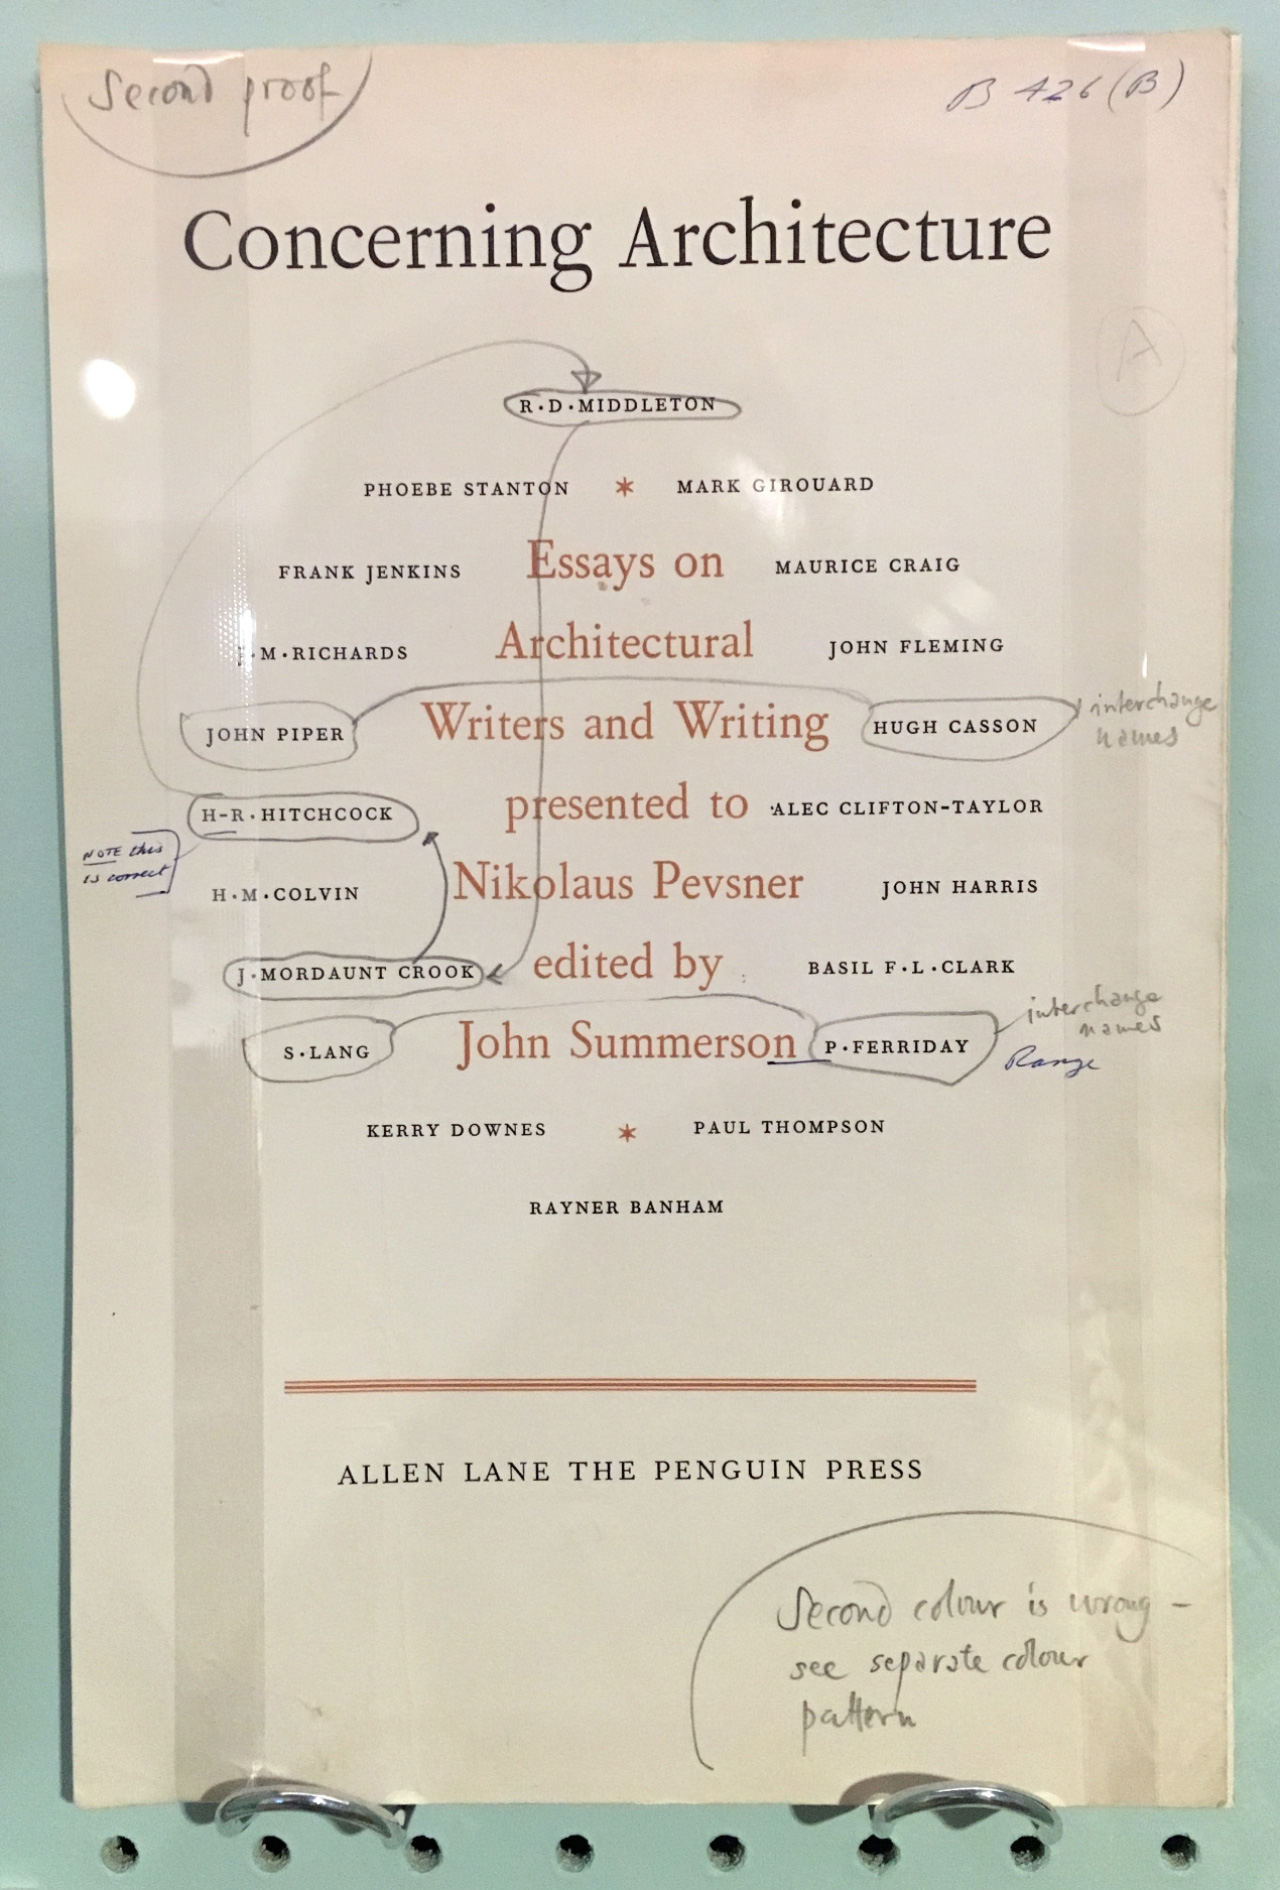 Second proof
B 426 (B)
Concerning Architecture
A
R·D·MIDDLETON
PHOEBE STANTON * MARK GIROUARD
FRANK JENKINS Essays on MAURICE CRAIG
·M·RICHARDS Architectural JOHN FLEMING
JOHN PIPER Writers and Writing HUGH CASSON interchange
names
H-R·HITCHCOCK presented to ALEC CLIFTON-TAYLOR
NOTE this
is correct
H·M·COLVIN Nikolaus Pevsner JOHN HARRIS
J·MORDAUNT CROOK edited by BASIL F·L·CLARK
S·LANG John Summerson P·FERRIDAY interchange
names
Range
KERRY DOWNES * PAUL THOMPSON
RAYNER BANHAM
ALLEN LANE THE PENGUIN PRESS
Second colour is wrong –
see separate colour
pattern